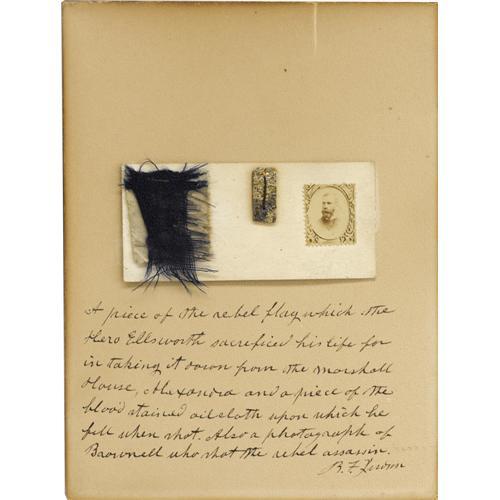 A piece of the rebel flag which the
Hero Ellsworth sacrificed his life for
in taking it down from the Marshall
House, Alexandra and a piece of the
blood stained oil cloth upon which he
fell when shot. Also a photograph of
Brownell who shot the rebel assassin.
B. F.